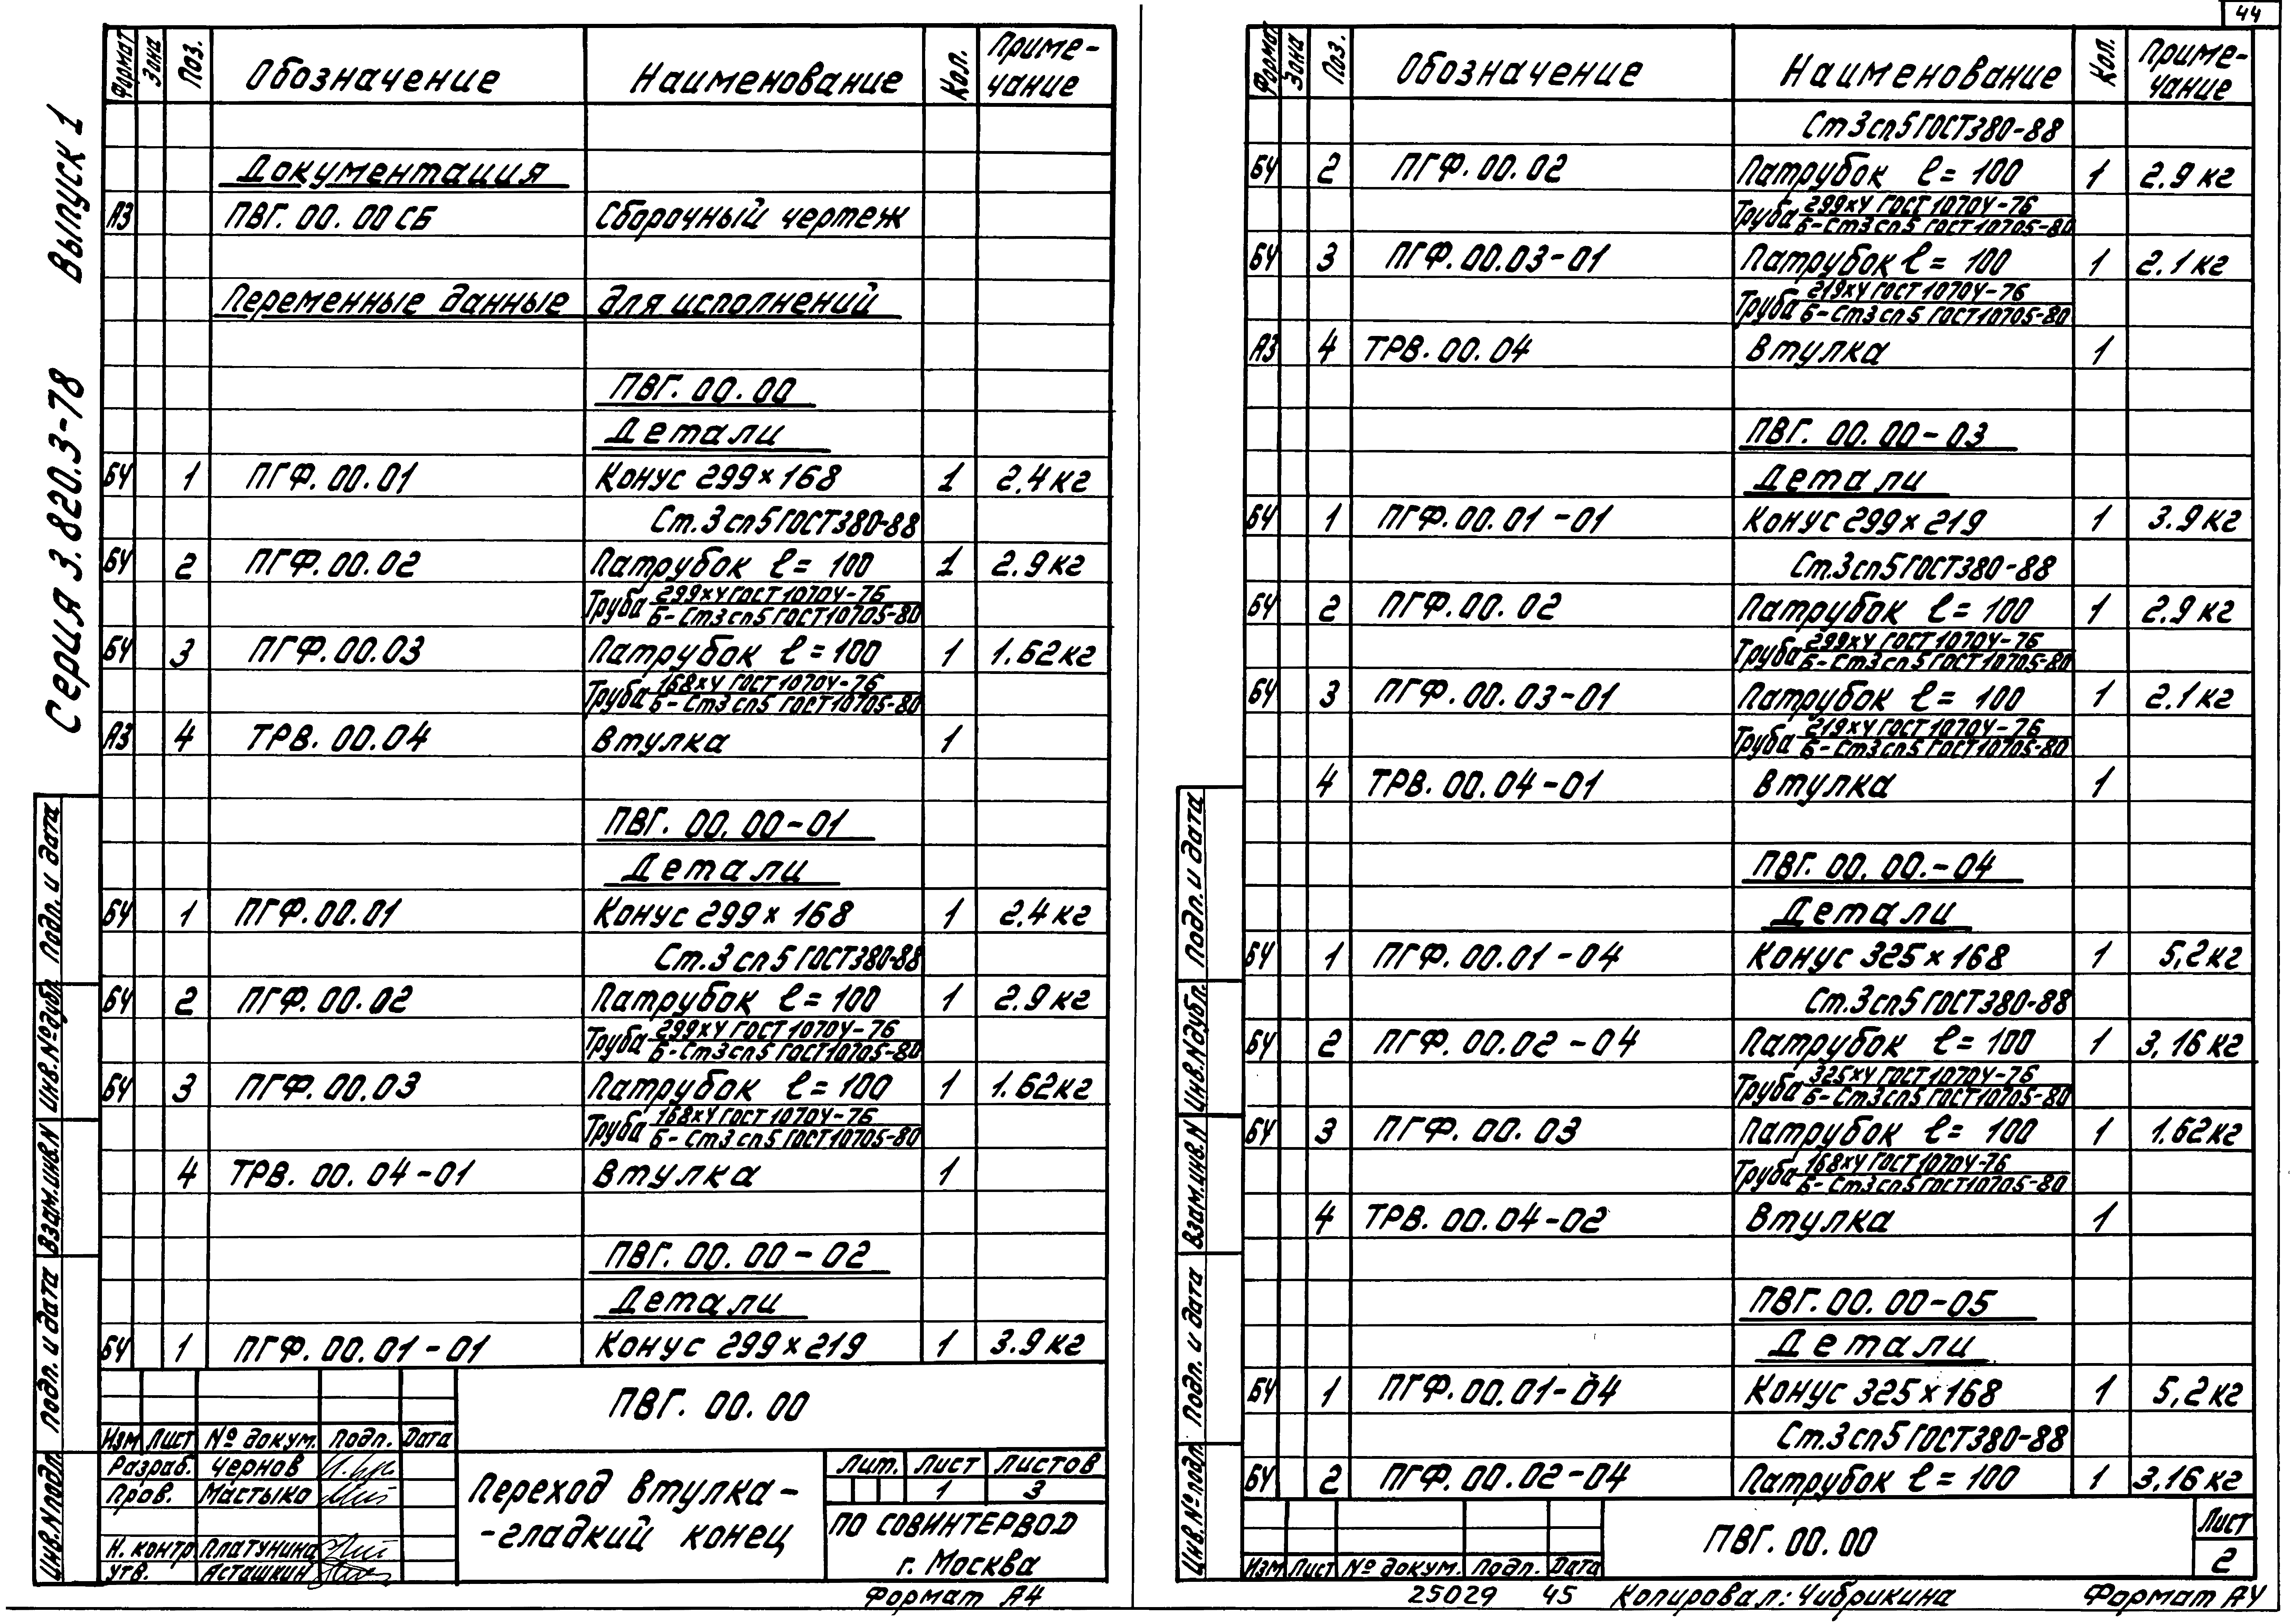 44
Серия 3.820.3-78 Выпуск 1
Формат Зона Поз. Обозначение Наименование Кол. Приме-чание
Документация
А3 ПВГ.00.00СБ Сборочный чертеж
Переменные данные для исполнений
ПВГ.00.00
Детали
БЧ 1 ПГФ.00.01 Конус 299×168 1 2.4кг
Ст.3сп5ГОСТ380-88
БЧ 2 ПГФ.00.02 Патрубок ℓ=100 1 2.9кг
Труба 299х4 ГОСТ 10704-76
Б-Ст3сп5 ГОСТ10705-80
БЧ 3 ПГФ.00.03 Патрубок ℓ=100 1 1.62кг
Труба 168х4 ГОСТ 10704-76
Б-Ст3сп5 ГОСТ10705-80
А3 4 ТРВ.00.04 Втулка 1
ПВГ.00.00-01
Детали
БЧ 1 ПГФ.00.01 Конус 299×168 1 2.4кг
Ст.3сп5ГОСТ380-88
БЧ 2 ПГФ.00.02 Патрубок ℓ=100 1 2.9кг
Труба 299х4 ГОСТ 10704-76
Б-Ст3сп5 ГОСТ10705-80
БЧ 3 ПГФ.00.03 Патрубок ℓ=100 1 1.62кг
Труба 168х4 ГОСТ 10704-76
Б-Ст3сп5 ГОСТ10705-80
4 ТРВ.00.04-01 Втулка 1
ПВГ.00.00-02
Детали
БЧ 1 ПГФ.00.01-01 Конус 299×219 1 3.9кг
ПВГ.00.00
Изм Лист № докум. Подп. Дата
Разраб. Чернов
Пров. Мастыко
Н. контр Платунина
Утв. Асташкин
Переход втулка-
-гладкий конец
Лит. Лист Листов
1 3
ПО СОВИНТЕРВОД
г. Москва
Формат А4
Инв.№подл. Подп. и дата Взам.инв.N Инв.№дубл. Подп. и дата
Формат Зона Поз. Обозначение Наименование Кол. Приме-чание
Ст3сп5ГОСТ380-88
БЧ 2 ПГФ.00.02 Патрубок ℓ=100 1 2.9кг
Труба 299х4 ГОСТ 10704-76
Б-Ст3сп5 ГОСТ10705-80
БЧ 3 ПГФ.00.03-01 Патрубок ℓ=100 1 2.1кг
Труба 219х4 ГОСТ 10704-76
Б-Ст3сп5 ГОСТ10705-80
А3 4 ТРВ.00.04 Втулка 1
ПВГ.00.00-03
Детали
БЧ 1 ПГФ.00.01-01 Конус 299×219 1 3.9кг
Ст.3сп5ГОСТ380-88
БЧ 2 ПГФ.00.02 Патрубок ℓ=100 1 2.9кг
Труба 299х4 ГОСТ 10704-76
Б-Ст3сп5 ГОСТ10705-80
БЧ 3 ПГФ.00.03-01 Патрубок ℓ=100 1 2.1кг
Труба 219х4 ГОСТ 10704-76
Б-Ст3сп5 ГОСТ10705-80
4 ТРВ.00.04-01 Втулка 1
ПВГ.00.00.-04
Детали
БЧ 1 ПГФ.00.01-04 Конус 325×168 1 5,2кг
Ст.3сп5ГОСТ380-88
БЧ 2 ПГФ.00.02-04 Патрубок ℓ=100 1 3,16кг
Труба 325х4 ГОСТ 10704-76
Б-Ст3сп5 ГОСТ10705-80
БЧ 3 ПГФ.00.03 Патрубок ℓ=100 1 1.62кг
Труба 168х4 ГОСТ 10704-76
Б-Ст3сп5 ГОСТ10705-80
4 ТРВ.00.04-02 Втулка 1
ПВГ.00.00-05
Детали
БЧ 1 ПГФ.00.01-04 Конус 325×168 1 5,2кг
Ст.3сп5ГОСТ380-88
БЧ 2 ПГФ.00.02-04 Патрубок ℓ=100 1 3,16кг
Изм Лист № докум. Подп. Дата
ПВГ.00.00
Лист
2
Инв.№подл. Подп. и дата Взам.инв.N Инв.Nдубл. Подп. и дата
25029 45 Копировал: Чибрикина Формат А4